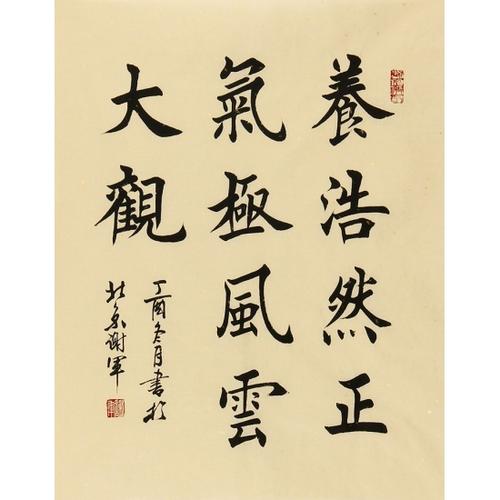 養浩然正
氣極風雲
大觀
丁酉冬月書於
北京谢軍